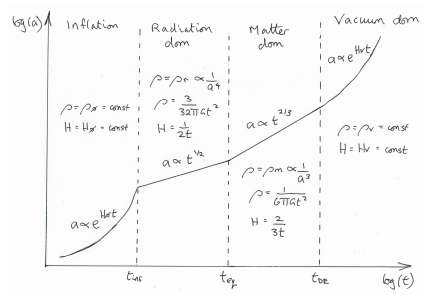 log(a)
Inflation
ρ = ρφ = const
H = Hφ = const
a ∝ e^Hφt
Radiation
dom
ρ = ρr ∝ 1/a⁴
ρ = 3/32πGt²
H = 1/2t
a ∝ t^1/2
Matter
dom
a ∝ t^2/3
ρ = ρm ∝ 1/a³
ρ = 1/6πGt²
H = 2/3t
Vacuum dom
a ∝ e^Hvt
ρ = ρv = const
H = Hv = const
tinf
teq
tDE
log(t)